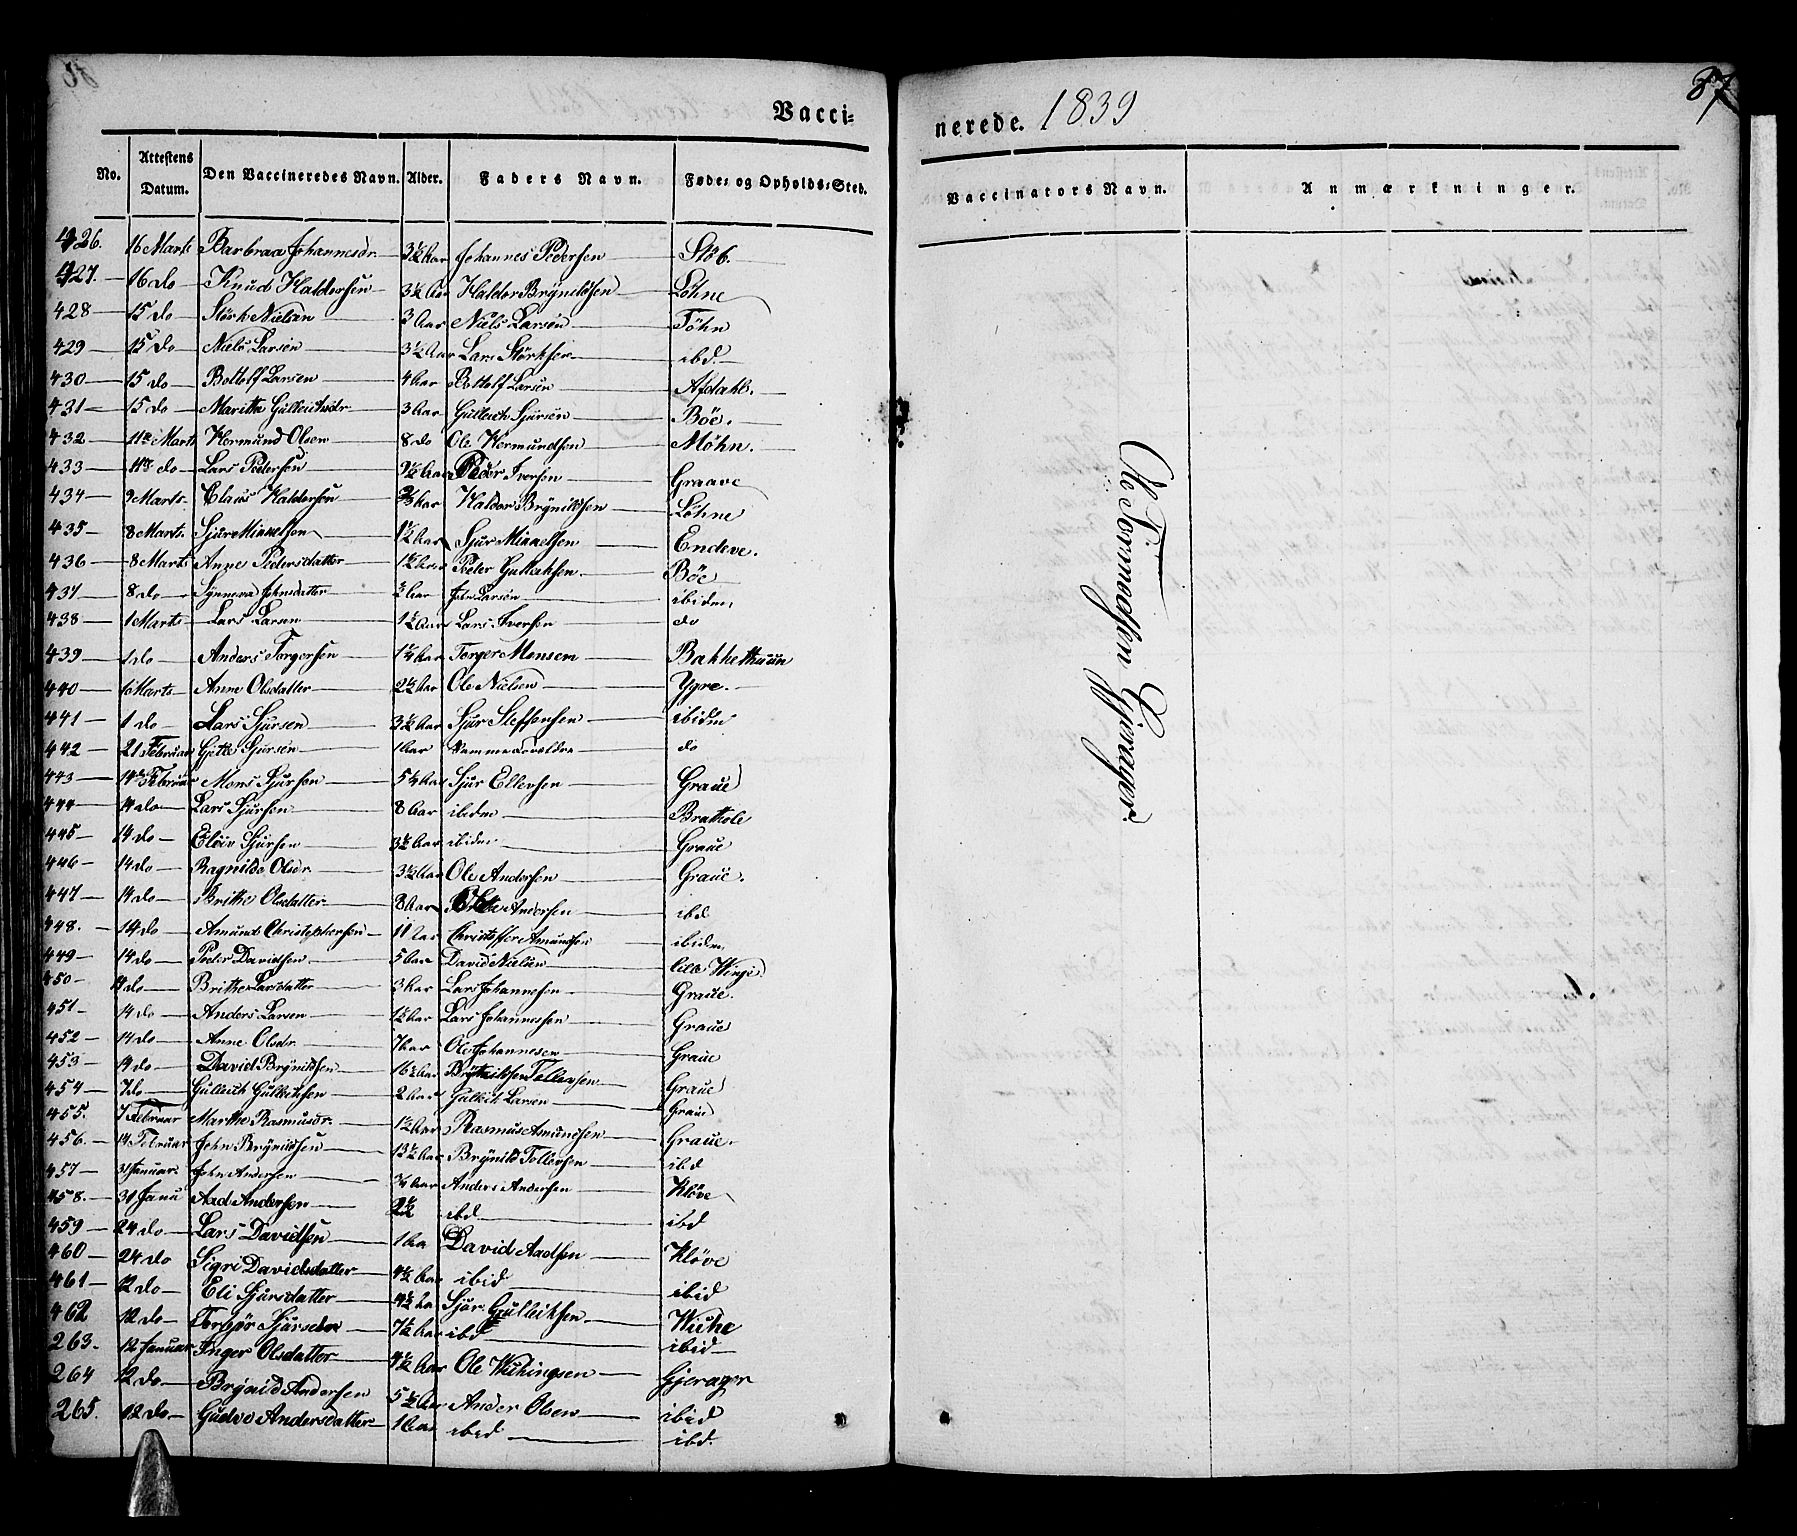 87
Vacci-
nerede. 1839
No. Attestens Datum. Den Vaccineredes Navn. Alder. Faders Navn. Føde- og Opholds-Sted. Vaccinators Navn. Anmærkninger.
426. 16 Marts Barbraa Johannesdr. 3½ Aar Johannes Pedersen Støb.
427. 16 do Knud Haldorsen 3½ Aar Haldor Brÿnildsen Løhne
428 15 do Störk Nielsen 3 Aar Niels Larsen Töhn
429 15 do Niels Larsen 3½ Aar Lars Störksen ibd.
430 15 do Bottolf Larsen 4 Aar Bottolf Larsen Afdahl.
431 15 do Maritha Gulleichsdr. 3 Aar Gulleich Sjursen Böe.
432 11te Marts Hermund Olsen 8 do Ole Hermundsen Möhn.
433 11te do Lars Pedersen Aar Peder Iversen Graave
434 9 Marts. Claus Haldorsen Aar Haldor Brÿnildsen Løhne
435 8 Marts. Sjur Mikkelsen 1½ Aar Sjur Mikkelsen Endeve.
436 8 Marts Anne Pedersdatter Peder Gullaksen. Böe
437 8 do Synneva Johnsdatter Aar John Larsen ibidem
438 1 Marts Lars Larsen 1½ Aar Lars Iversen do
439 1 do Anders Torgersen Aar Torger Monsen Bakkethuun
440 1 Marts Anne Olsdatter 2½ Aar Ole Nielsen Ygre.
441 1 do Lars Sjursen 3½ Aar Sjur Steffensen ibidm
442 21 Februar Sjursen 1 Aar Samme Forældre do
443 14 Februar Mons Sjursen Aar Sjur Ellevsen Graue
444 14 do Lars Sjursen 8 Aar ibidem Brathole
445 14 do Elöiv Sjursen 3½ Aar ibidem Graue
446 14 do Ragnilda Olsdr. 3½ Aar Ole Andersen Graue.
447 14 do Brithe Olsdatter 8 Aar Ole Andersen ibd
448. 14 do Amund Christophersen 11 Aar Christoffer Amundsen ibidem
449 14 do Peder Davidsen 5 Aar David Nielsen lille Winje.
450 14 do Brithe Larsdatter 3 Aar Lars Johannesen Graue.
451 14 do Anders Larsen 1½ Aar Lars Johannessen Graue
452 14 do Anne Olsdr. 7 Aar Ole Johannesen Graue
453 14 do David Brÿnildsen 16½ Aar Tollevsen Graue
454 7 do Gulleich Gulleiksen 2 Aar Larsen Graue
455. 7 Februar Marthe Rasmusdr. 1½ Aar Rasmus Amundsen Graue.
456. 14 Februar John Brÿnildsen 13½ Aar Brÿnild Tollevsen ibd
457 31 Januar. John Andersen ¾ Aar Anders Andersen Klöve
458. 31 Janu Aad Andersen 2½ ibd ibd
459 24 do Lars Davidsen 1 Aa David Aadsen Klöve
460 24 do Sigri Davidsdatter 4½ Aar ibid ibid
461 12 do Eli Sjursdatter 4½ Aa Sjur Gulleiksen Wiche
462 12 do Sjursdtr 7½ Aar ibd ibid
263. 12 Januar Inger Olsdatter 4½ Aar Ole Wikingsen Gjerager
264 12 do Brÿnild Andersen 5½ Aar Ander Olsen ibid
265. 12 do Gudve Andersdatter 1 Aar ibid ibd.
Ole Tormodsen Gjerager.